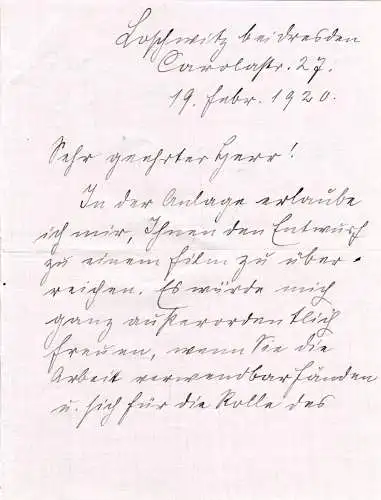 Loschwitz bei Dresden
Carolastr. 27.
19. Febr. 1920.
Sehr geehrter Herr!
In der Anlage erlaube
ich mir, Ihnen den Entwurf
zu einem Film zu über-
reichen. Es würde mich
ganz außerordentlich
freuen, wenn Sie die
Arbeit verwendbar fänden
u. sich für die Rolle des